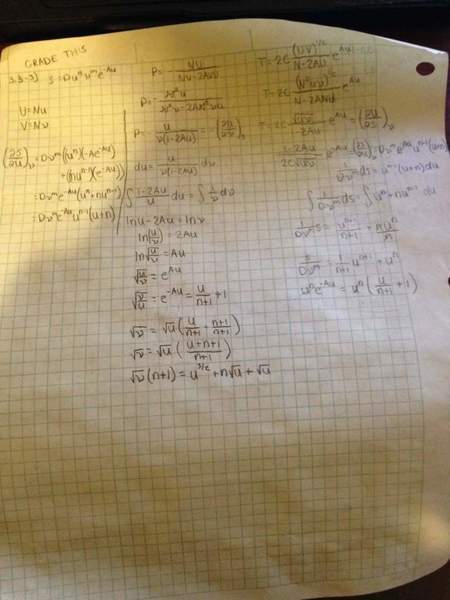 GRADE THIS
3.3-3) s = Du^n v^m e^-Au
U = Nu
V = Nv
(∂s/∂u)_v = Dv^m ((u^n)(-Ae^-Au)
+ (nu^n-1)(e^-Au))
= Dv^m e^-Au (u^n + nu^n-1)
= Dv^m e^-Au u^n-1 (u+n)
P = NU / NV - 2AUV
P = N²u / N²v - 2AN²uv
P = u / v(1-2Au) = -(∂u/∂v)_s
du = u / v(1-2Au) dv
∫ 1-2Au / u du = ∫ 1/v dv
lnu - 2Au = lnv
ln(u/v) = 2Au
ln√u/v = Au
√u/v = e^Au
√v/u = e^-Au = u/n+1 + 1
√v = √u (u/n+1 + n+1/n+1)
√v = √u (u+n+1 / n+1)
√v (n+1) = u^3/2 + n√u + √u
T = 2C (UV)^1/2 / N-2AU e^Au
T = 2C (N²uv)^1/2 / N-2ANu e^Au
∫ 1/Dv^m ds = ∫ u^n + nu^n-1 du
1/Dv^m s = u^n+1 / n+1 + nu^n / n
s/Dv^m = 1/n+1 u^n+1 + u^n
u^n e^-Au = u^n (u/n+1 + 1)